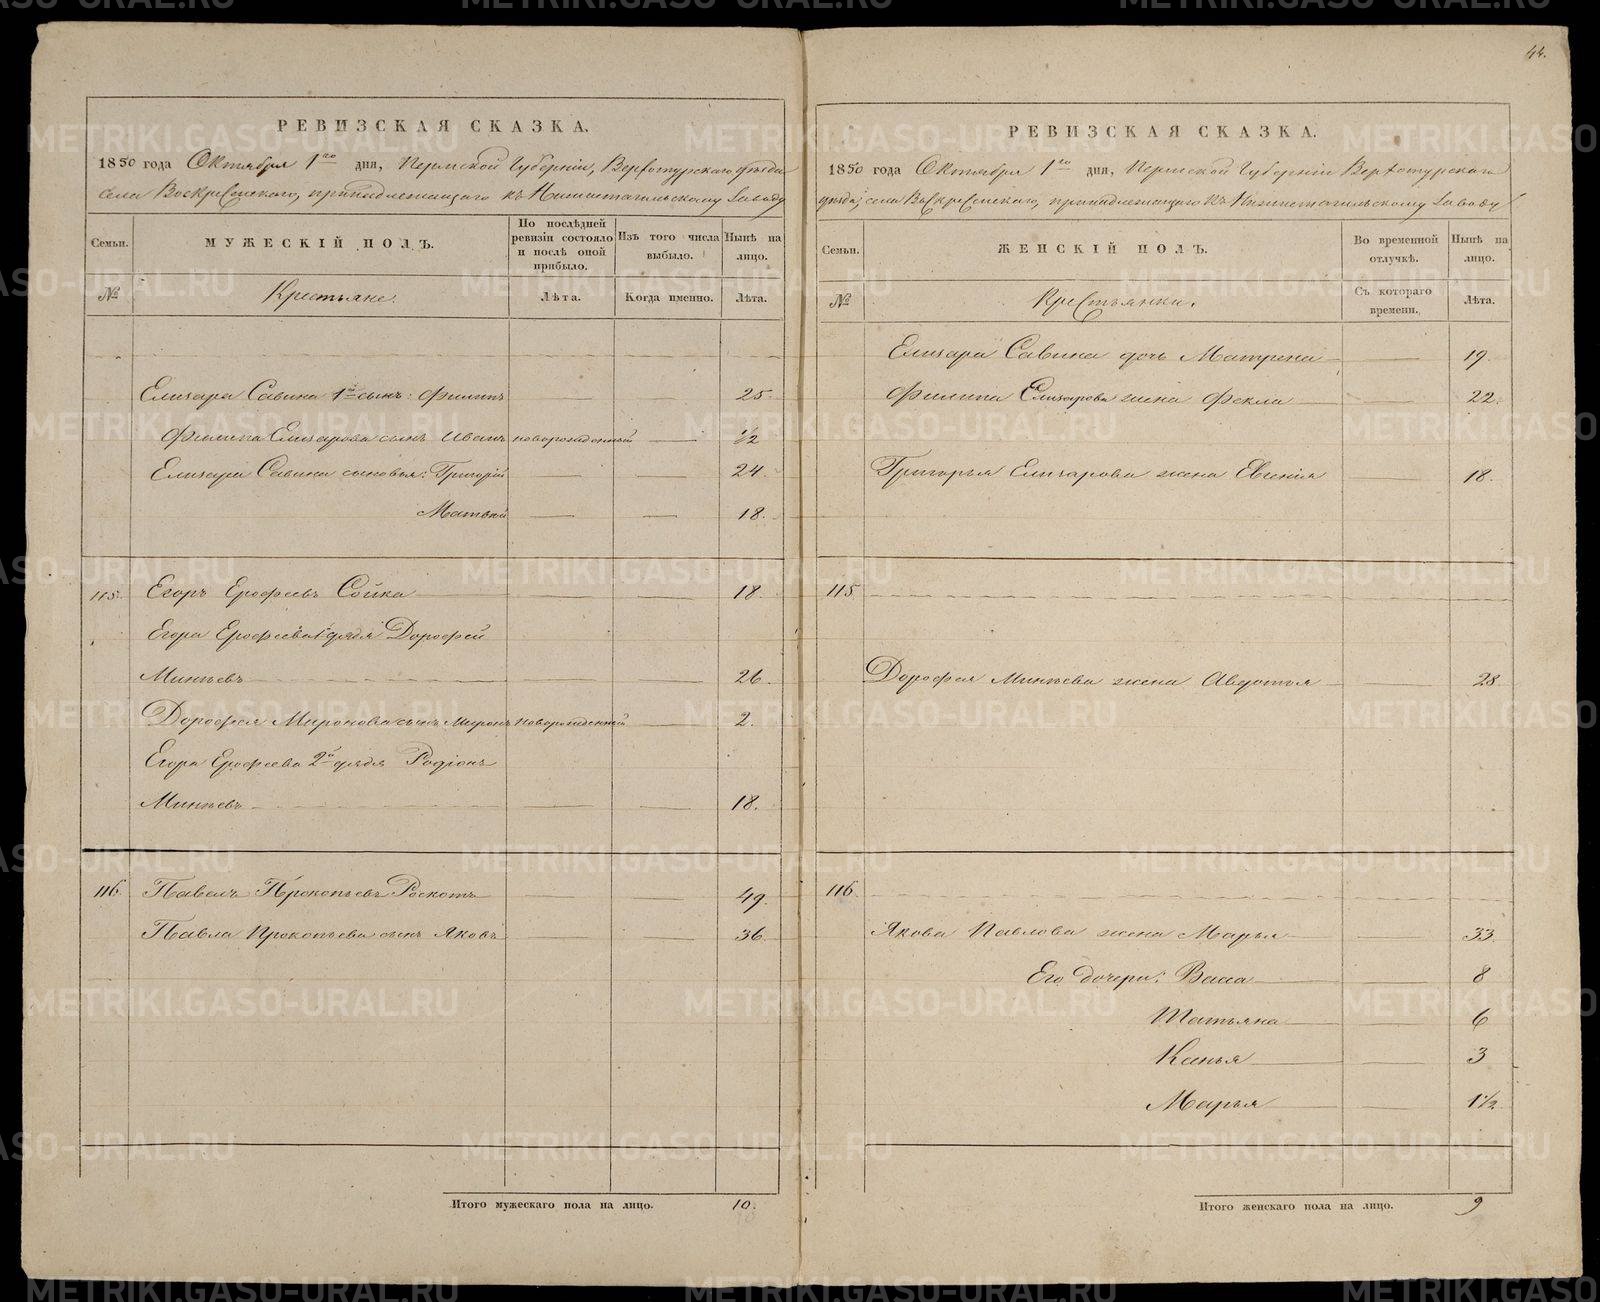 44.
РЕВИЗСКАЯ СКАЗКА.
1850 года Октября 1го дня, Пермской Губерніи, Верхотурскаго уѣзда
села Воскресенскаго, принадлежащаго къ Нижнетагильскому Заводу
Семьи.
МУЖЕСКІЙ ПОЛЪ.
По послѣдней ревизіи состояло и послѣ оной прибыло.
Изъ того числа выбыло.
Нынѣ на лицо.
№
Крестьяне.
Лѣта.
Когда именно.
Лѣта.
Елизара Савина 1й сынъ: Филипъ 25.
Филипа Елизарова сынъ Иванъ новорожденный 1/2
Елизара Савина сыновья: Григорій 24.
Матвѣй 18.
115. Егоръ Ерофеевъ Сойка 18.
Егора Ерофеева 1й дядя Дорофей
Минѣевъ 26.
Дорофея Миронова сынъ Миронъ новорожденный 2.
Егора Ерофеева 2й дядя Родіонъ
Минѣевъ 18.
116. Павелъ Прокопьевъ Роскотъ 49.
Павла Прокопьева сынъ Яковъ 36.
Итого мужескаго пола на лицо. 10.
РЕВИЗСКАЯ СКАЗКА.
1850 года Октября 1го дня, Пермской Губерніи Верхотурскаго
уѣзда, села Воскресенскаго, принадлежащаго къ Нижнетагильскому Заводу
Семьи.
ЖЕНСКІЙ ПОЛЪ.
Во временной отлучкѣ.
Нынѣ на лицо.
№
Крестьянки.
Съ котораго времени.
Лѣта.
Елизара Савина дочь Матрена 19.
Филипа Елизарова жена Фекла 22.
Григорья Елизарова жена Евгенія 18.
115
Дорофея Минѣева жена Авдотья 28.
116.
Якова Павлова жена Марья 33.
Его дочери: Васса 8
Татьяна 6
Ксенья 3
Марья 1 1/2
Итого женскаго пола на лицо. 9
METRIKI.GASO-URAL.RU